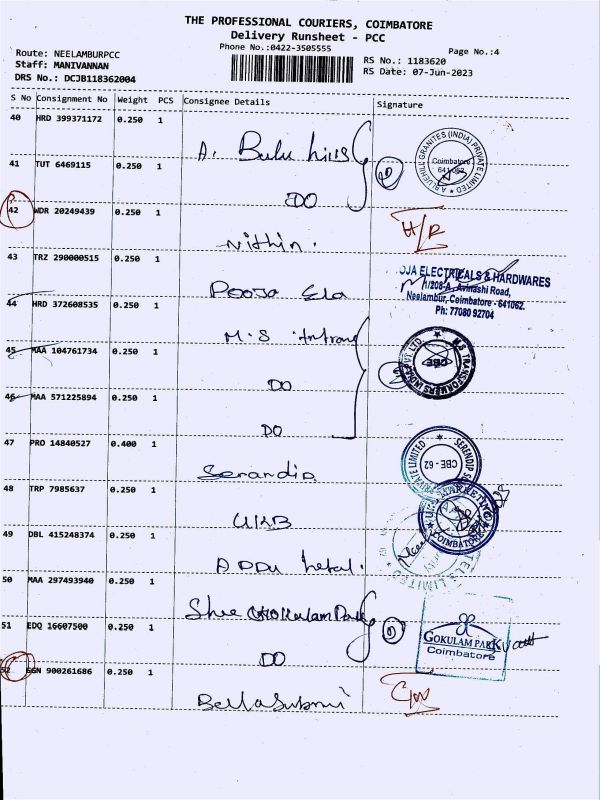 THE PROFESSIONAL COURIERS, COIMBATORE
Delivery Runsheet - PCC
Phone No.:0422-3505555
Page No.:4
Route: NEELAMBURPCC
Staff: MANIVANNAN
DRS No.: DCJB118362004
RS No.: 1183620
RS Date: 07-Jun-2023
S No Consignment No Weight PCS Consignee Details Signature
40 HRD 399371172 0.250 1
A. Bulu hills
GRANITES (INDIA) PRIVATE LIMITED
Coimbatore
641 062.
41 TUT 6469115 0.250 1
DO
42 WDR 20249439 0.250 1
Nithin.
H/R
43 TRZ 290000515 0.250 1
Pooja Ela
OJA ELECTRICALS & HARDWARES
1/208-A, Avinashi Road,
Neelambur, Coimbatore - 641062.
Ph: 77080 92704
44 HRD 372608535 0.250 1
M.S
M.S. TRANSFORMERS INDIA PVT LTD
CBE
45 MAA 104761734 0.250 1
DO
46 MAA 571225894 0.250 1
DO
47 PRD 14840527 0.400 1
Serandip
SERENDIP
PRIVATE LIMITED
CBE - 62
48 TRP 7985637 0.250 1
UKB
MARKETING
COIMBATORE
49 DBL 415248374 0.250 1
APPU hotal.
LIMITED
50 MAA 297493940 0.250 1
Shree Gokulam Park
51 EDQ 16607500 0.250 1
DO
GOKULAM PARK
Coimbatore
52 GGN 900261686 0.250 1
Bellasubmi